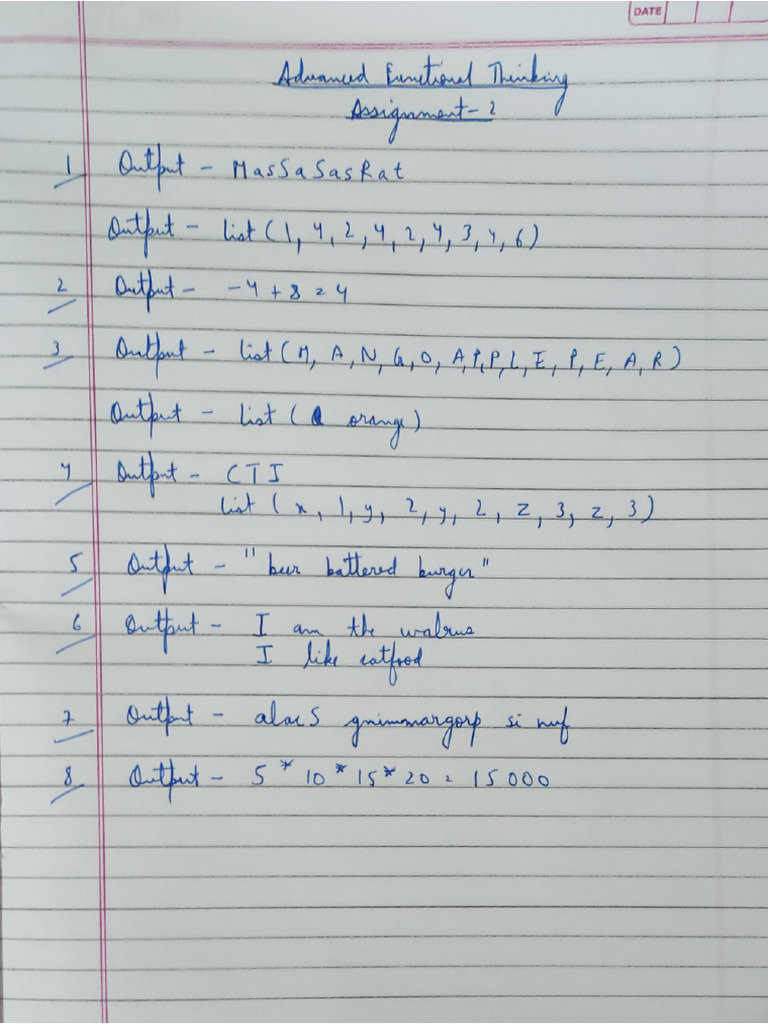 DATE
Advanced Functional Thinking
Assignment-2
1 Output - MasSaSasRat
Output - list (1, 4, 2, 4, 2, 4, 3, 4, 6)
2 Output - -4 + 8 = 4
3 Output - list (M, A, N, G, O, A, P, P, L, E, P, E, A, R)
Output - list ( orange)
4 Output - CTI
list ( x, 1, y, 2, y, 2, z, 3, z, 3)
5 Output - "beer battered burger"
6 Output - I am the walrus
I like catfood
7 Output - alacS gnimmargorp si nuf
8 Output - 5 * 10 * 15 * 20 = 15000